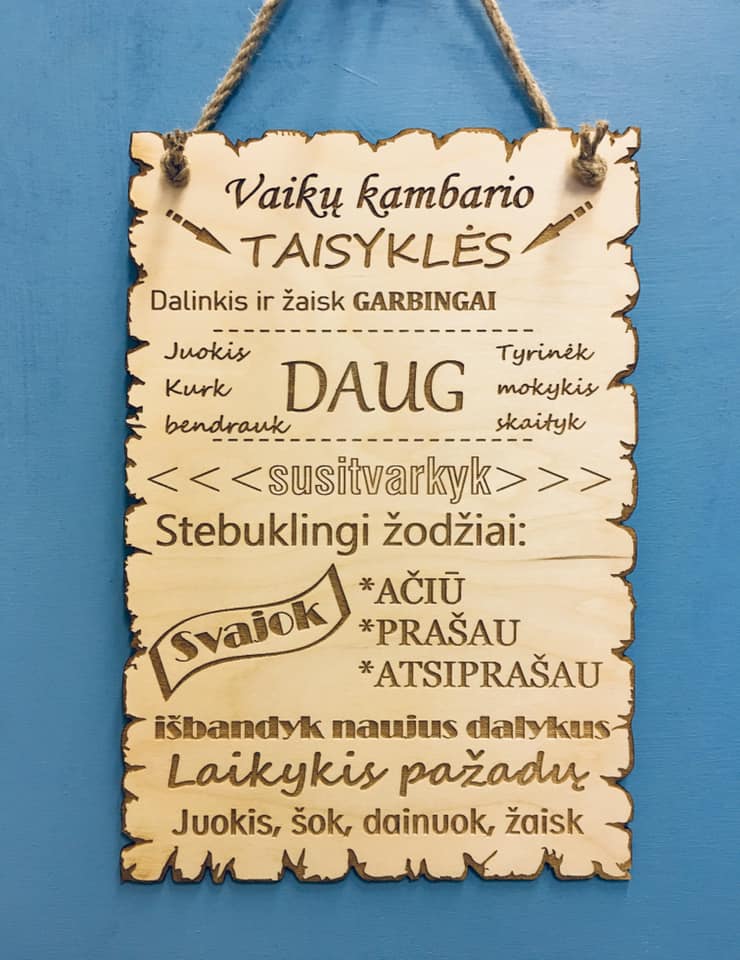 Vaikų kambario
TAISYKLĖS
Dalinkis ir žaisk GARBINGAI
Juokis
Kurk
bendrauk
DAUG
Tyrinėk
mokykis
skaityk
<<<susitvarkyk>>>
Stebuklingi žodžiai:
Svajok
*AČIŪ
*PRAŠAU
*ATSIPRAŠAU
išbandyk naujus dalykus
Laikykis pažadų
Juokis, šok, dainuok, žaisk